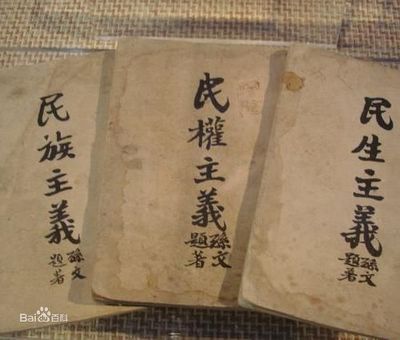 民族主義
孫文
題著
民權主義
孫文
題著
民生主義
孫文
題著
Bai百科